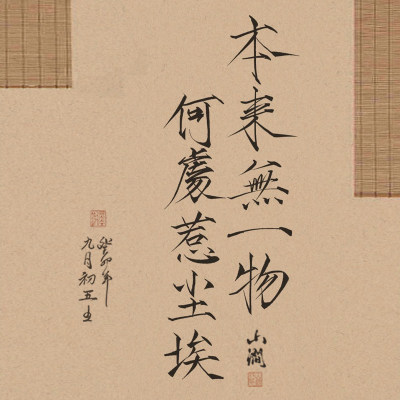 本来無一物
何處惹尘埃
癸卯年
九月初五